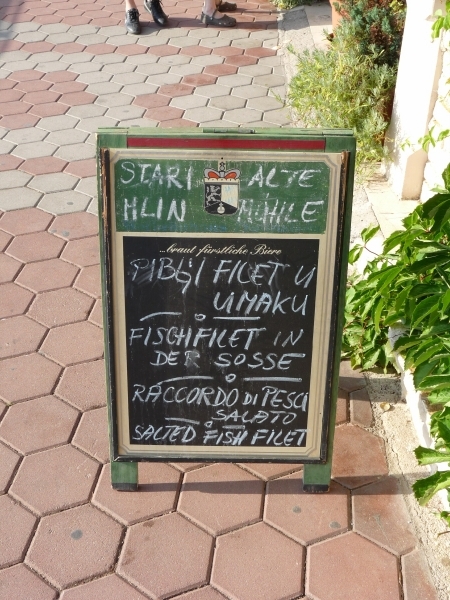 STARI ALTE
MLIN MÜHLE
...braut fürstliche Biere
RIBLJI FILET U
UMAKU
FISCHFILET IN
DER SOSSE
RACCORDO DI PESCI
SALATO
SALTED FISH FILET